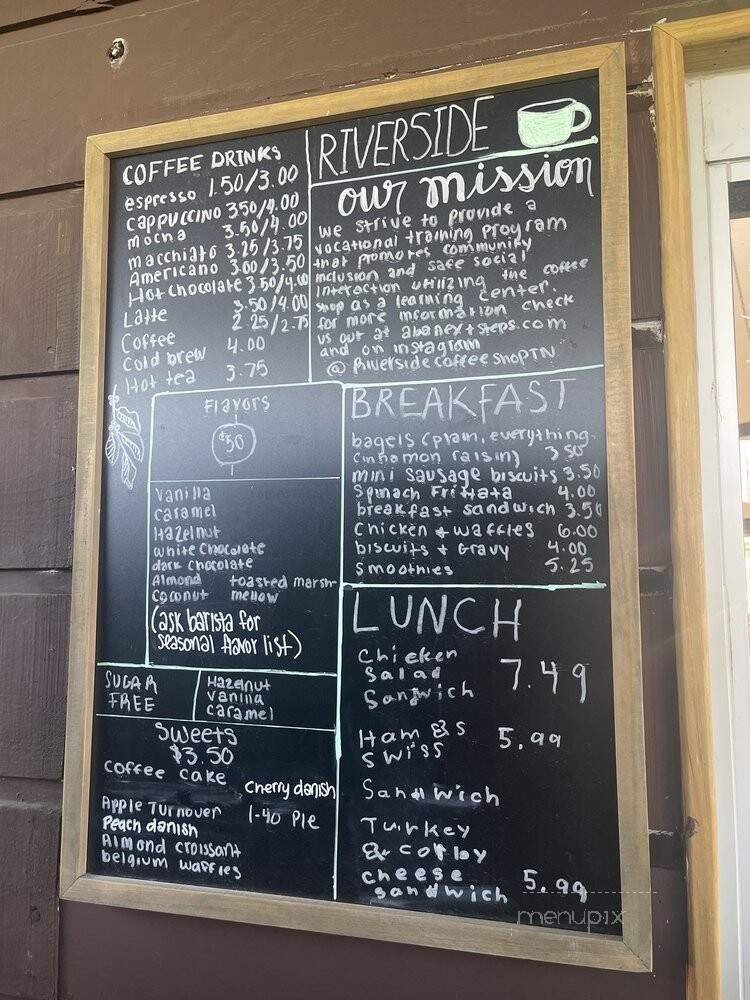 COFFEE DRINKS
espresso 1.50/3.00
cappuccino 3.50/4.00
mocha 3.50/4.00
macchiato 3.25/3.75
Americano 3.00/3.50
Hot chocolate 3.50/4.00
Latte 3.50/4.00
Coffee 2.25/2.75
Cold brew 4.00
Hot tea 3.75
RIVERSIDE
our mission
we strive to provide a
vocational training program
that promotes community
inclusion and safe social
interaction utilizing the coffee
shop as a learning center.
for more information check
us out at abanextsteps.com
and on instagram
@ RiversidecoffeeshopTN
Flavors
$50
vanilla
caramel
Hazelnut
white chocolate
dark chocolate
Almond toasted marsh-
Coconut mellow
(ask barista for
seasonal flavor list)
SUGAR
FREE
Hazelnut
vanilla
caramel
Sweets
$3.50
coffee cake
Cherry danish
Apple Turnover
1-40 Pie
Peach danish
Almond croissant
belgium waffles
BREAKFAST
bagels (plain, everything
cinnamon raisin) 3.50
mini sausage biscuits 3.50
Spinach Frittata 4.00
breakfast sandwich 3.50
Chicken & waffles 6.00
biscuits & Gravy 4.00
Smoothies 5.25
LUNCH
Chicken
Salad 7.49
Sandwich
Ham & S
Swiss 5.99
Sandwich
Turkey
& colby
cheese
sandwich 5.99
menupix